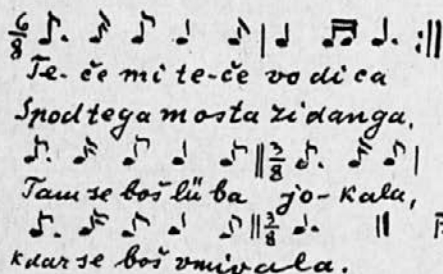 6/8
Te-če mi te-če vo di ca
Spod tega mosta zidanga,
3/8
Tam se boš lüba jo-kala,
3/8
kdar se boš vmivala.